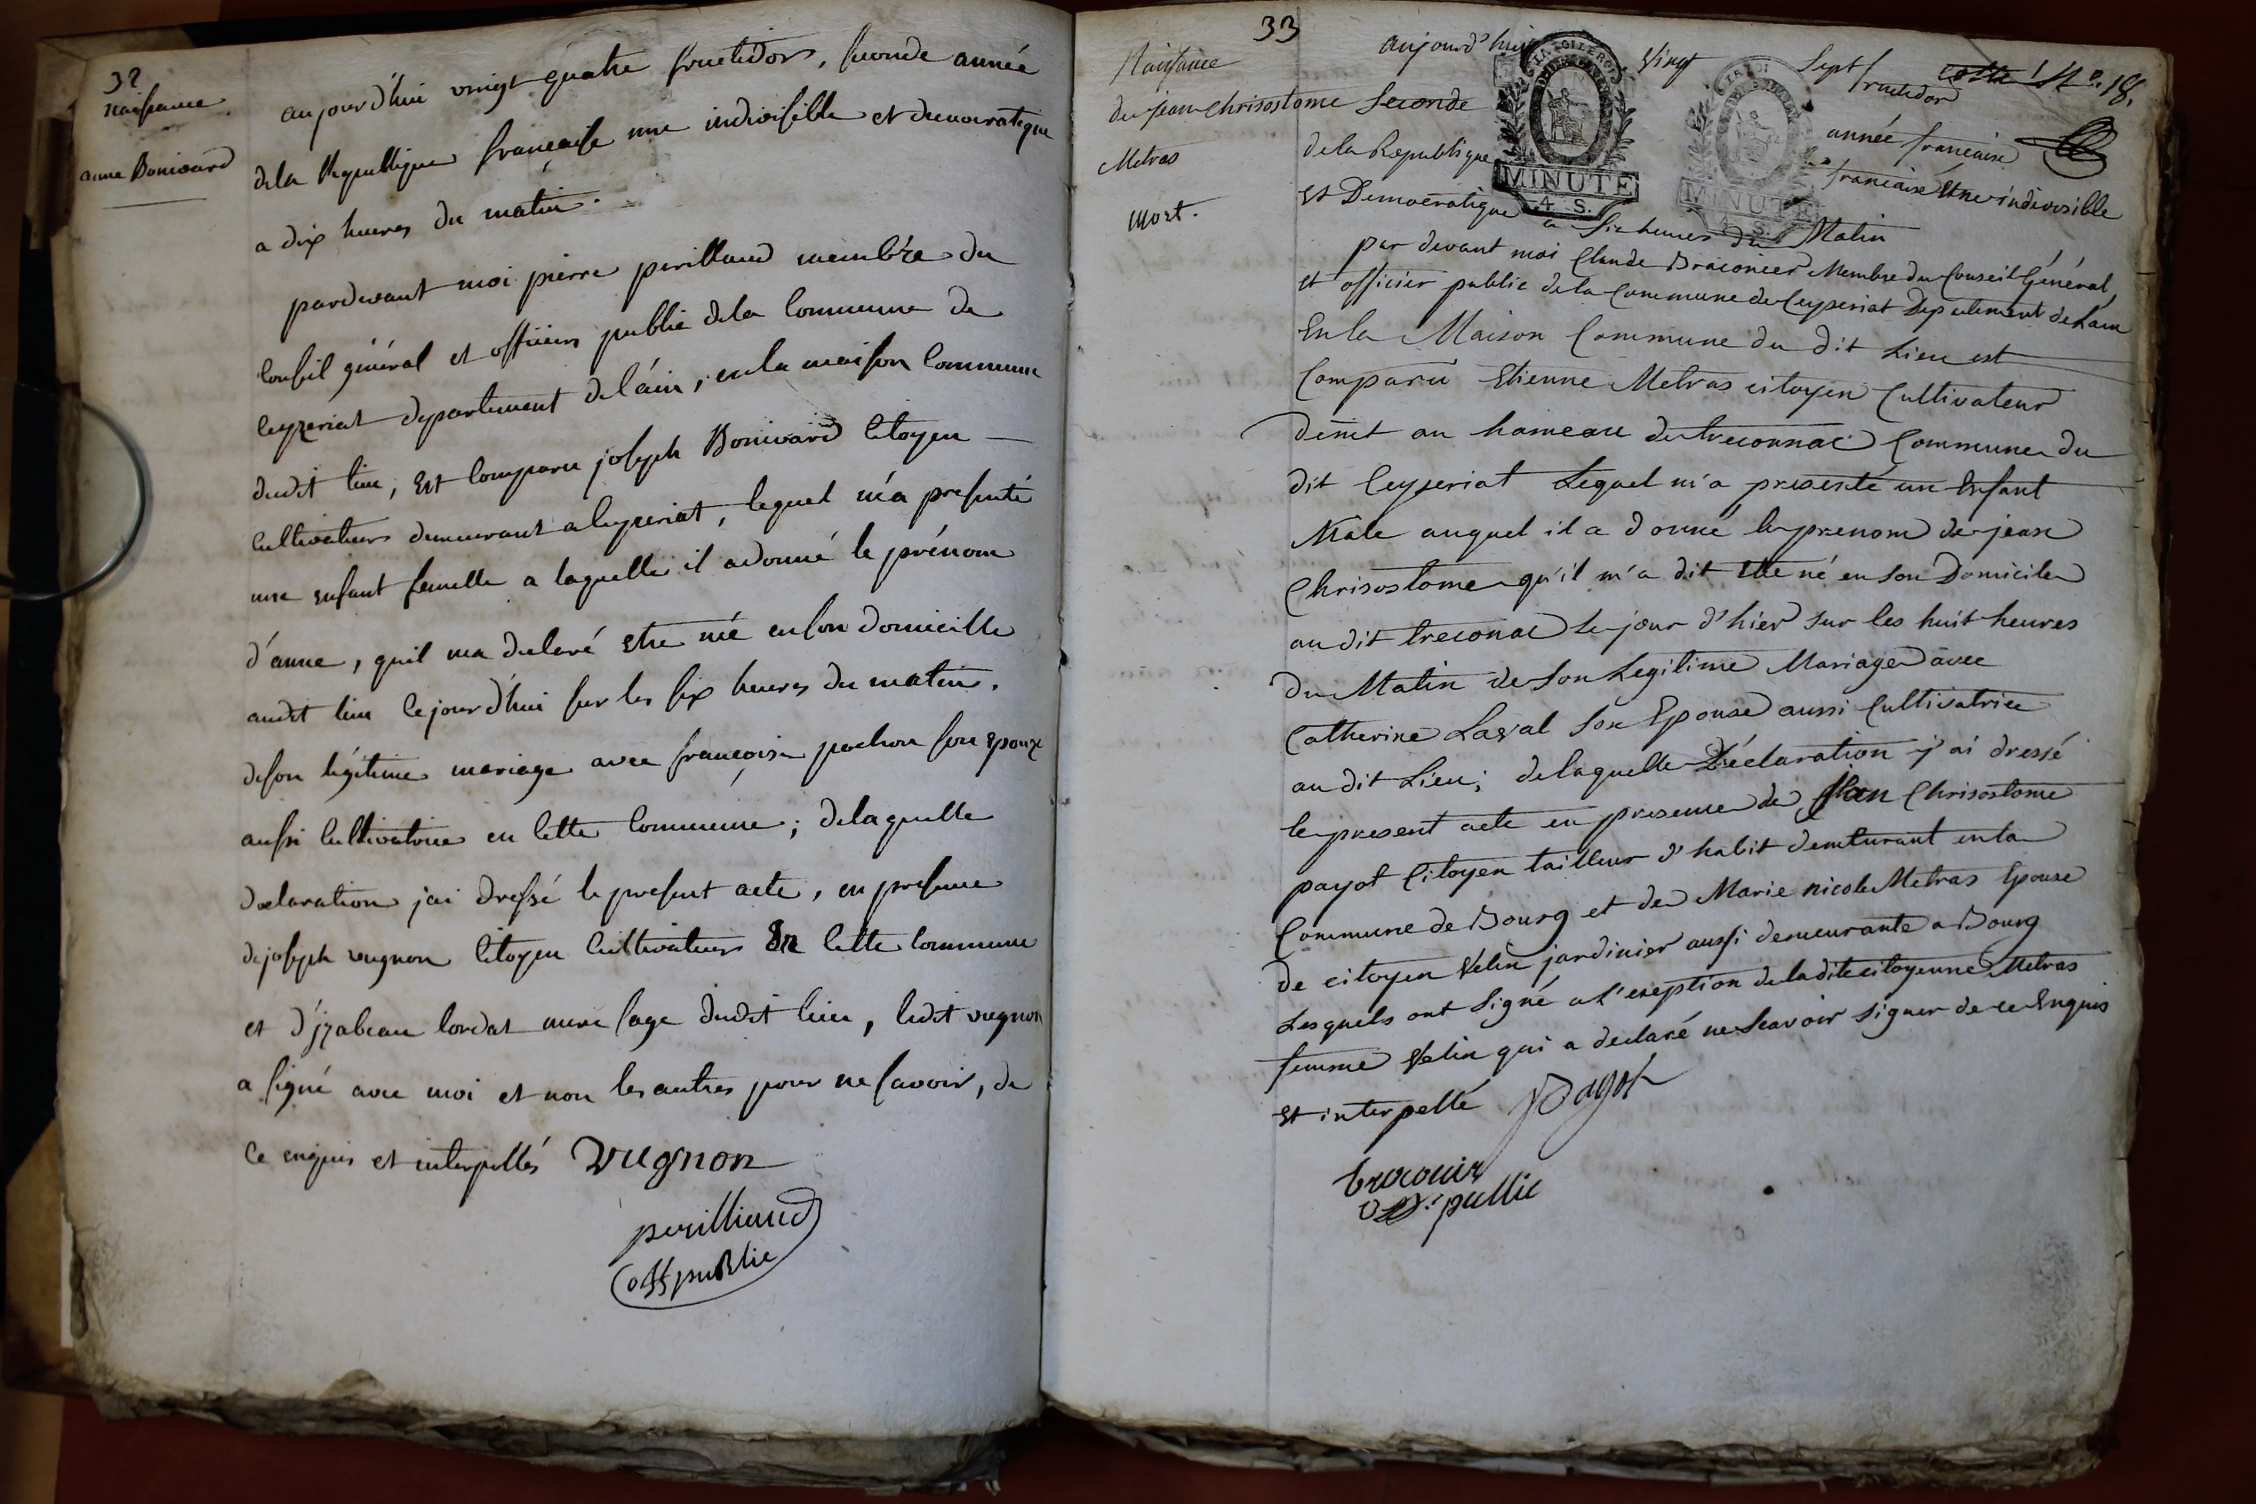 32
naissance
anne Bonivard
aujourd'hui vingt quatre fructidor, seconde année
dela Republique française une indivisible et democratique
a dix heures du matin.
pardevant moi pierre perilliaud membre du
conseil général et officier public dela commune de
ceyzeriat departement de l'ain, en la maison commune
dudit lieu, Est comparu joseph Bonivard citoyen
cultivateur demeurant a ceyzeriat, lequel m'a presenté
une enfant femelle a laquelle il a donné le prénom
d'anne, quil ma declaré etre née en son domicille
audit lieu ce jourd'hui sur les six heures du matin.
deson légitime mariage avec françoise pochon son epouze
aussi cultivatrice en cette commune; delaquelle
declaration jai dressé le present acte, en presence
de joseph vugnon citoyen cultivateur de cette commune
et d'jzabeau lordat mere sage dudit lieu, ledit vugnon
a signé avec moi et non les autres pour ne savoir, de
ce enquis et interpellés vugnon
perilliaud
off public
33
Naissance
de jean chrisostome
Metras
Mort.
cotte 14e. 18.
LA LOI LE ROI
MINUTE
4. S.
MINUTE
4. S.
aujourd'hui Vingt Sept fructidor
Seconde année francaise
dela Republique francaise Une indivisible
Et Democratique a Six heures du Matin
par devant moi Claude Braconier Membre du Conseil Général
et officier public dela Commune de Ceyseriat Departement de Lain
En la Maison Commune du dit Lieu est
Comparu Etienne Metras citoyen Cultivateur
demt au hameau de treconnac Commune du
dit Ceyseriat Lequel m'a presenté un Enfant
Mâle auquel il a donné le prenom de jean
Chrisostome qu'il m'a dit etre né en son Domicile
au dit treconac le jour d'hier sur les huit heures
du Matin de son Legitime Mariage avec
Catherine Laval son Epouse aussi Cultivatrice
au dit Lieu; delaquelle Déclaration j'ai dressé
le present acte en presence de jean Chrisostome
payot Citoyen tailleur d'habit demeurant en la
Commune de Bourg et de Marie nicole Metras Epouse
de citoyen Velin jardinier aussi demeurante a Bourg
Lesquels ont Signé a l'exeption deladite citoyenne Metras
femme Velin qui a declaré ne Scavoir signer de ce Enquis
et interpellé Payot
braconier
off. public